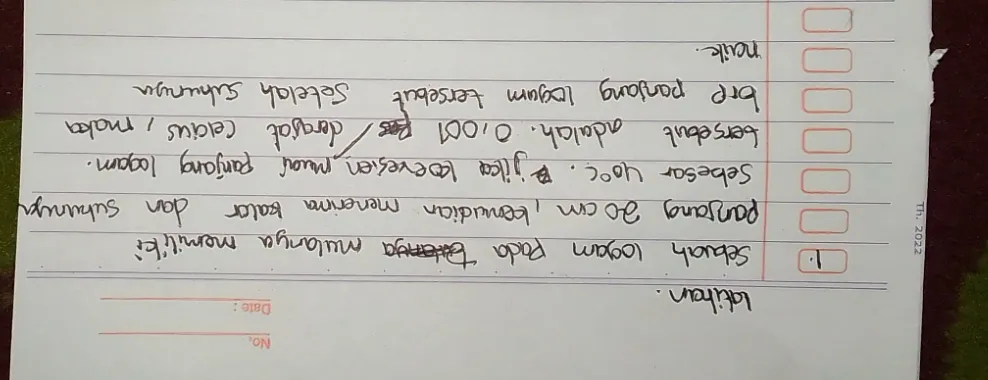 No.
Date :
Latihan.
1. Sebuah logam pada mulanya memiliki
panjang 20 cm, kemudian menerima kalor dan suhunya
sebesar 40°C. jika koevesien muai panjang logam.
tersebut adalah. 0,001 / derajat celcius, maka
brp panjang logam tersebut setelah suhunya
naik.
Th. 2022